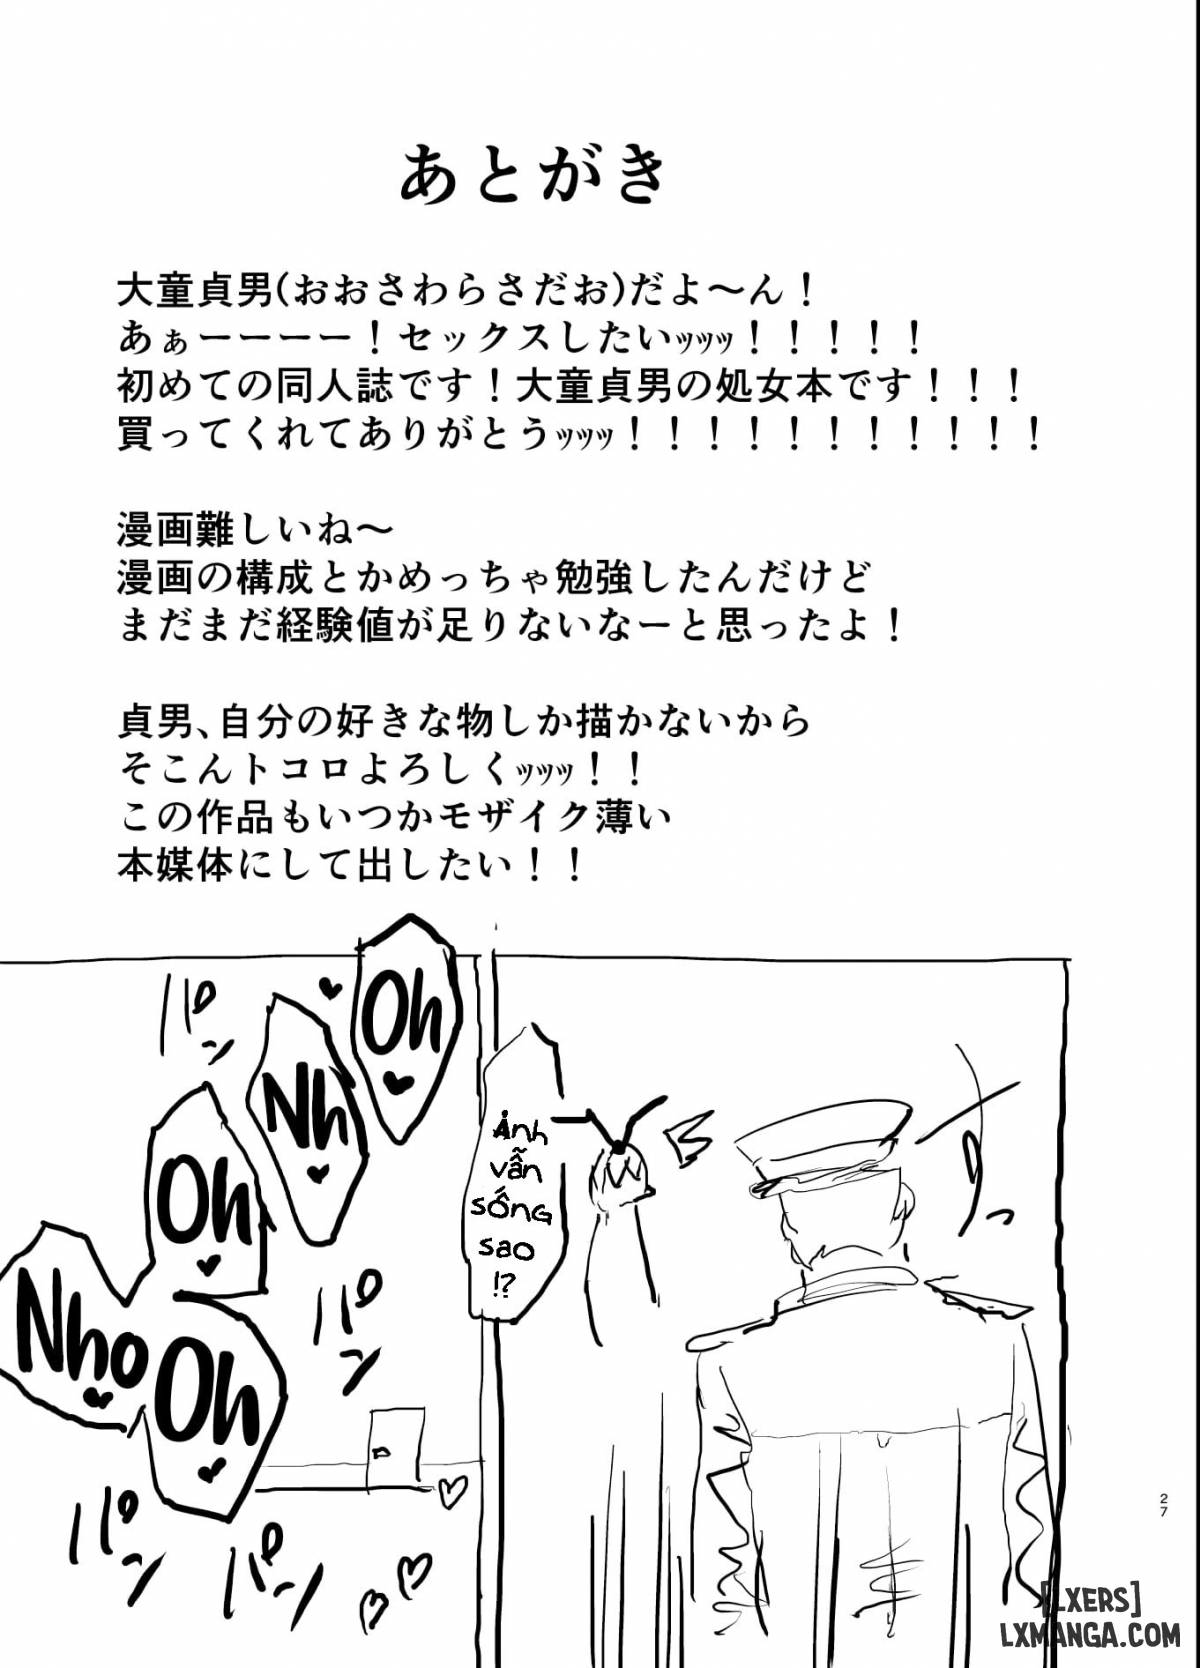 あとがき
大童貞男(おおさわらさだお)だよ～ん！
あぁーーーー！セックスしたいッッッ！！！！！
初めての同人誌です！大童貞男の処女本です！！！
買ってくれてありがとうッッッ！！！！！！！！！！！
漫画難しいね～
漫画の構成とかめっちゃ勉強したんだけど
まだまだ経験値が足りないなーと思ったよ！
貞男、自分の好きな物しか描かないから
そこんトコロよろしくッッッ！！
この作品もいつかモザイク薄い
本媒体にして出したい！！
Oh
Nh
Oh
Nho
Oh
パン
パン
パン
パン
Ảnh
vẫn
sống
sao
!?
27
[LXERS]
LXMANGA.COM